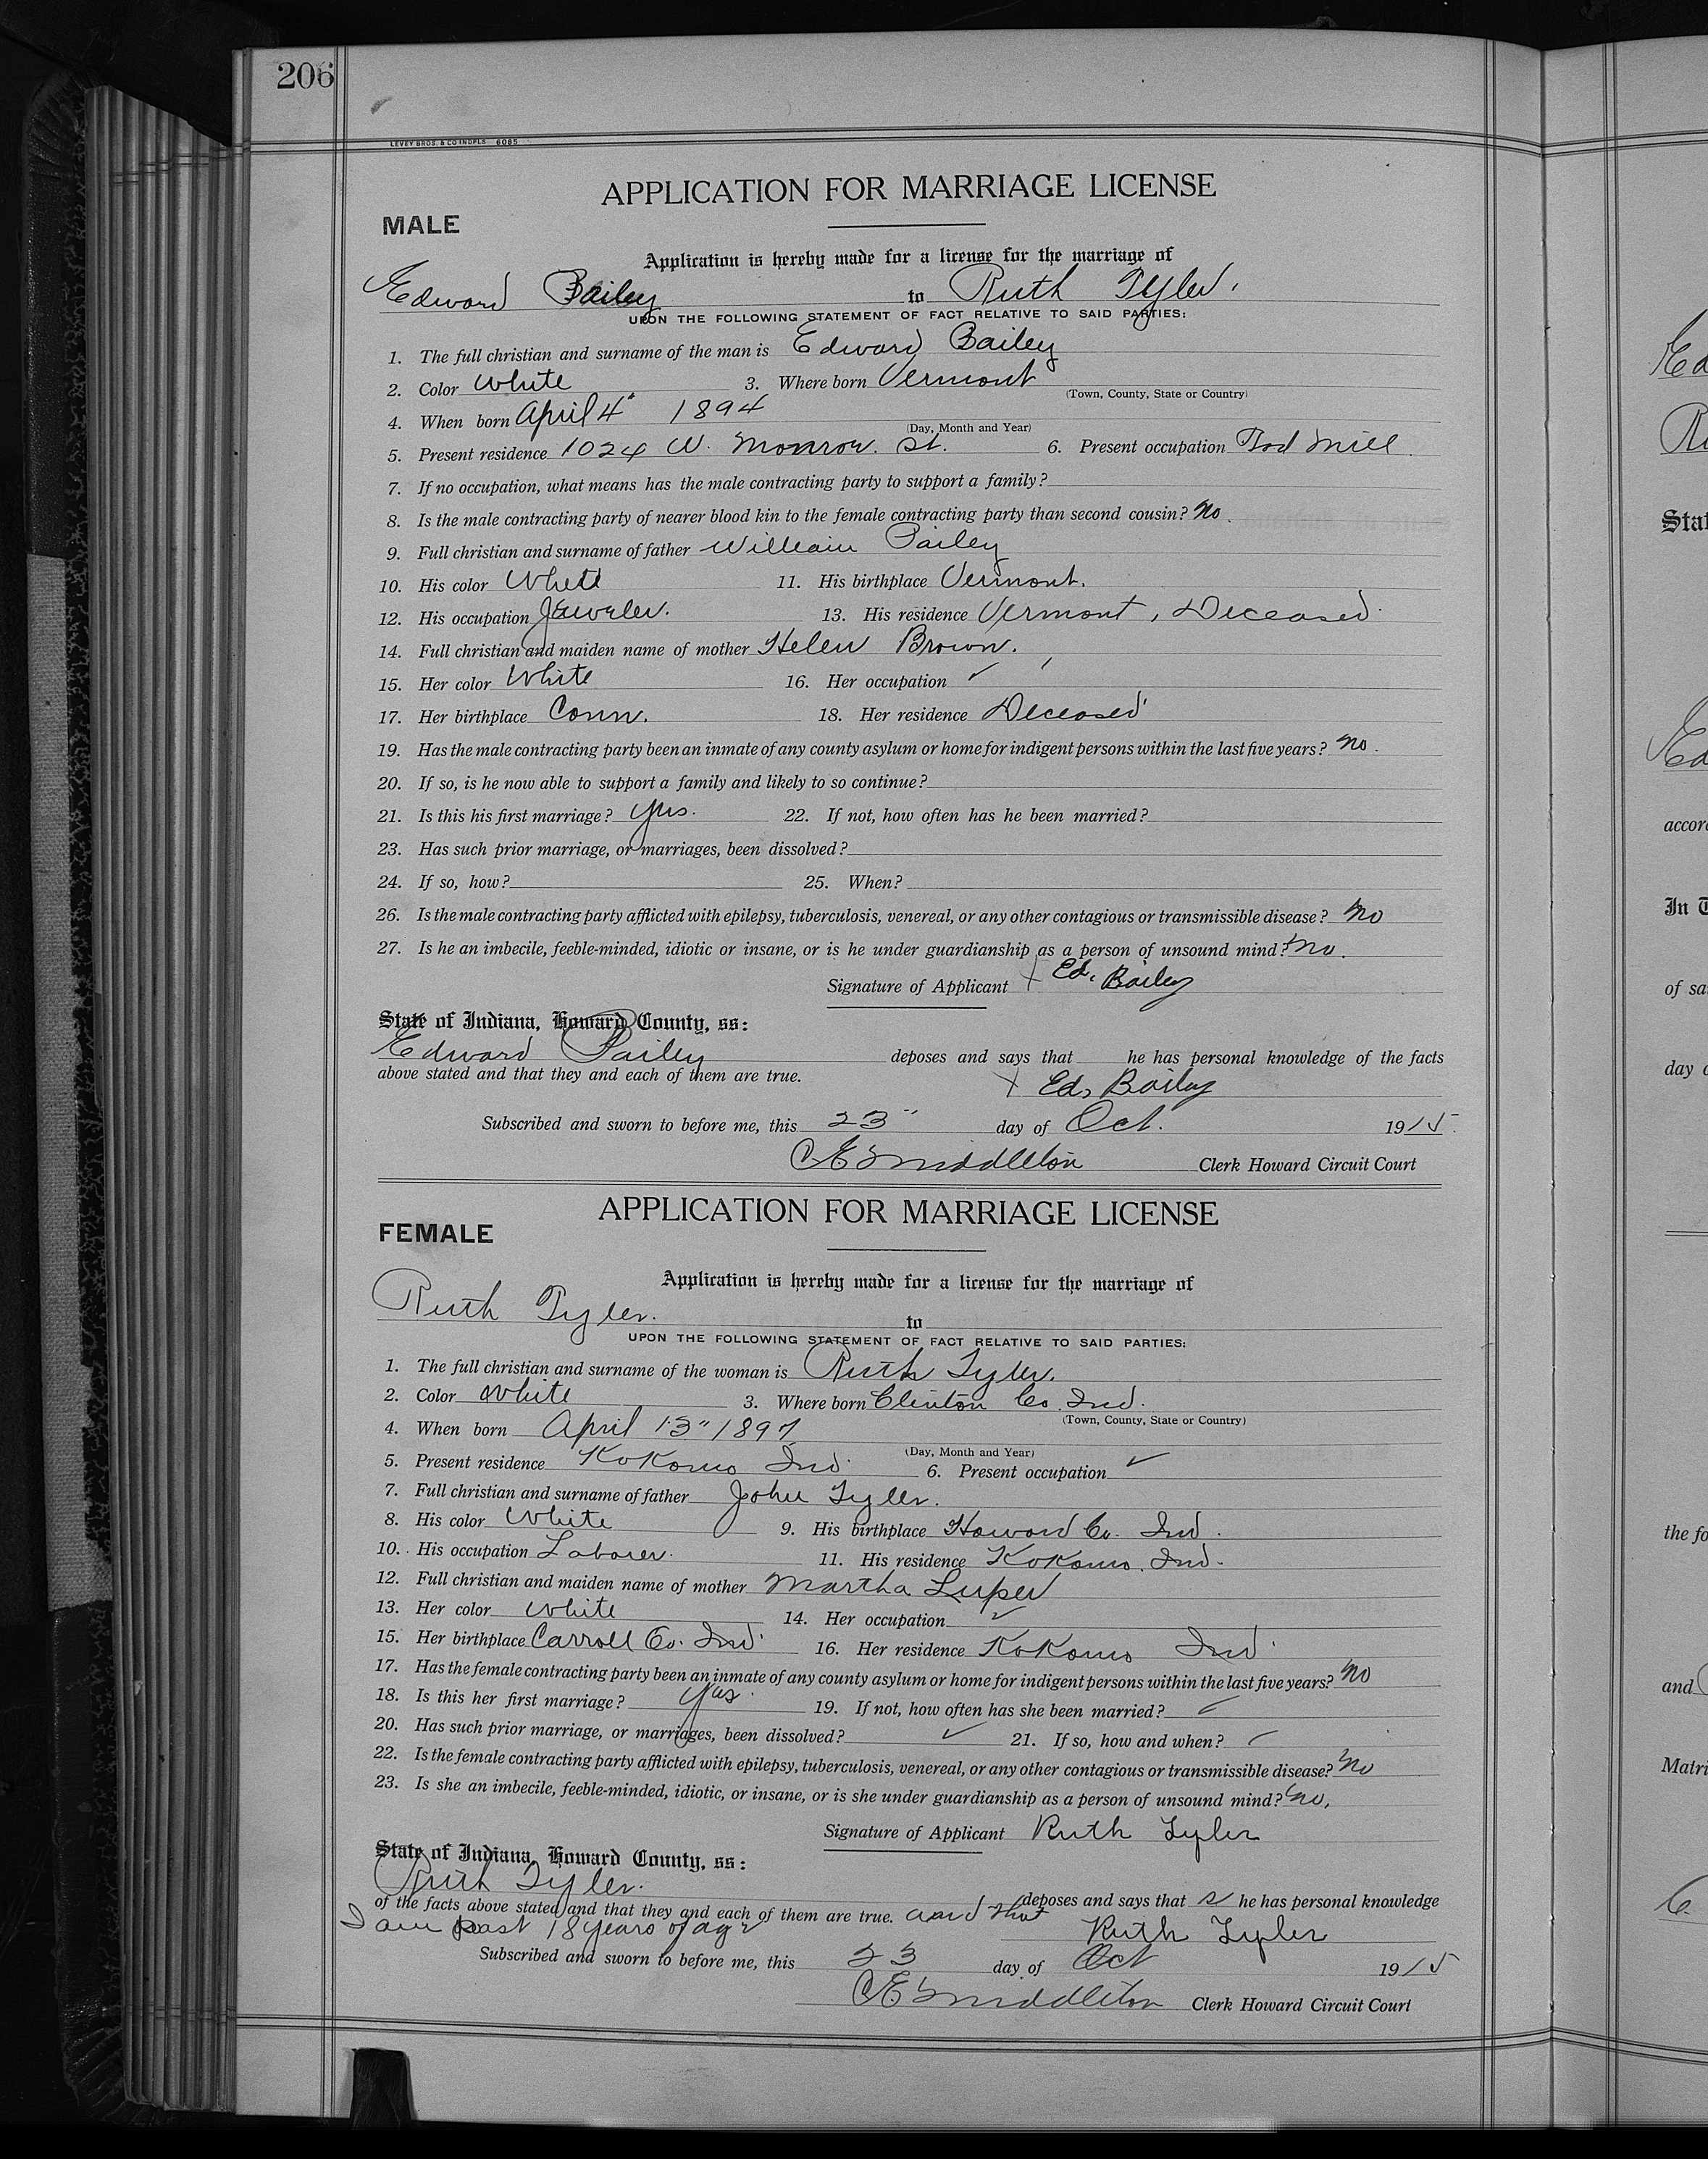 206
LEVEY BROS. & CO INDPLS 6085
APPLICATION FOR MARRIAGE LICENSE
MALE
Application is hereby made for a license for the marriage of
Edward Bailey to Ruth Tyler.
UPON THE FOLLOWING STATEMENT OF FACT RELATIVE TO SAID PARTIES:
1. The full christian and surname of the man is Edward Bailey
2. Color White 3. Where born Vermont
(Town, County, State or Country)
4. When born April 4" 1894
(Day, Month and Year)
5. Present residence 1024 W. Monroe. St. 6. Present occupation Rod Mill
7. If no occupation, what means has the male contracting party to support a family?
8. Is the male contracting party of nearer blood kin to the female contracting party than second cousin? No.
9. Full christian and surname of father William Bailey
10. His color White 11. His birthplace Vermont.
12. His occupation Jeweler. 13. His residence Vermont, Deceased.
14. Full christian and maiden name of mother Helen Brown.
15. Her color White 16. Her occupation ✓
17. Her birthplace Conn. 18. Her residence Deceased
19. Has the male contracting party been an inmate of any county asylum or home for indigent persons within the last five years? No.
20. If so, is he now able to support a family and likely to so continue?
21. Is this his first marriage? Yes. 22. If not, how often has he been married?
23. Has such prior marriage, or marriages, been dissolved?
24. If so, how? 25. When?
26. Is the male contracting party afflicted with epilepsy, tuberculosis, venereal, or any other contagious or transmissible disease? No
27. Is he an imbecile, feeble-minded, idiotic or insane, or is he under guardianship as a person of unsound mind? No.
Signature of Applicant X Ed. Bailey
State of Indiana, Howard County, ss:
Edward Bailey deposes and says that he has personal knowledge of the facts
above stated and that they and each of them are true.
X Ed. Bailey
Subscribed and sworn to before me, this 23" day of Oct. 1915
C E Middleton Clerk Howard Circuit Court
APPLICATION FOR MARRIAGE LICENSE
FEMALE
Application is hereby made for a license for the marriage of
Ruth Tyler. to
UPON THE FOLLOWING STATEMENT OF FACT RELATIVE TO SAID PARTIES:
1. The full christian and surname of the woman is Ruth Tyler.
2. Color White 3. Where born Clinton Co. Ind.
(Town, County, State or Country)
4. When born April 13" 1897
(Day, Month and Year)
5. Present residence Kokomo Ind. 6. Present occupation ✓
7. Full christian and surname of father John Tyler.
8. His color White 9. His birthplace Howard Co. Ind.
10. His occupation Laborer. 11. His residence Kokomo. Ind.
12. Full christian and maiden name of mother Martha Luper
13. Her color White 14. Her occupation ✓
15. Her birthplace Carroll Co. Ind. 16. Her residence Kokomo Ind.
17. Has the female contracting party been an inmate of any county asylum or home for indigent persons within the last five years? No
18. Is this her first marriage? Yes. 19. If not, how often has she been married? ✓
20. Has such prior marriage, or marriages, been dissolved? ✓ 21. If so, how and when? ✓
22. Is the female contracting party afflicted with epilepsy, tuberculosis, venereal, or any other contagious or transmissible disease? No
23. Is she an imbecile, feeble-minded, idiotic, or insane, or is she under guardianship as a person of unsound mind? No.
Signature of Applicant Ruth Tyler
State of Indiana, Howard County, ss:
Ruth Tyler. deposes and says that s he has personal knowledge
of the facts above stated and that they and each of them are true. and that
I am past 18 years of age Ruth Tyler
Subscribed and sworn to before me, this 23 day of Oct 1915
C E Middleton Clerk Howard Circuit Court
Stat
accor
In T
of sa
day o
the fo
and
Matri